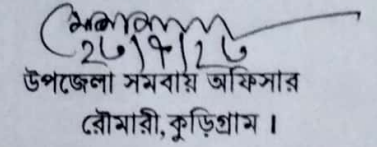 উপজেলা সমবায় অফিসার
রৌমারী, কুড়িগ্রাম ।